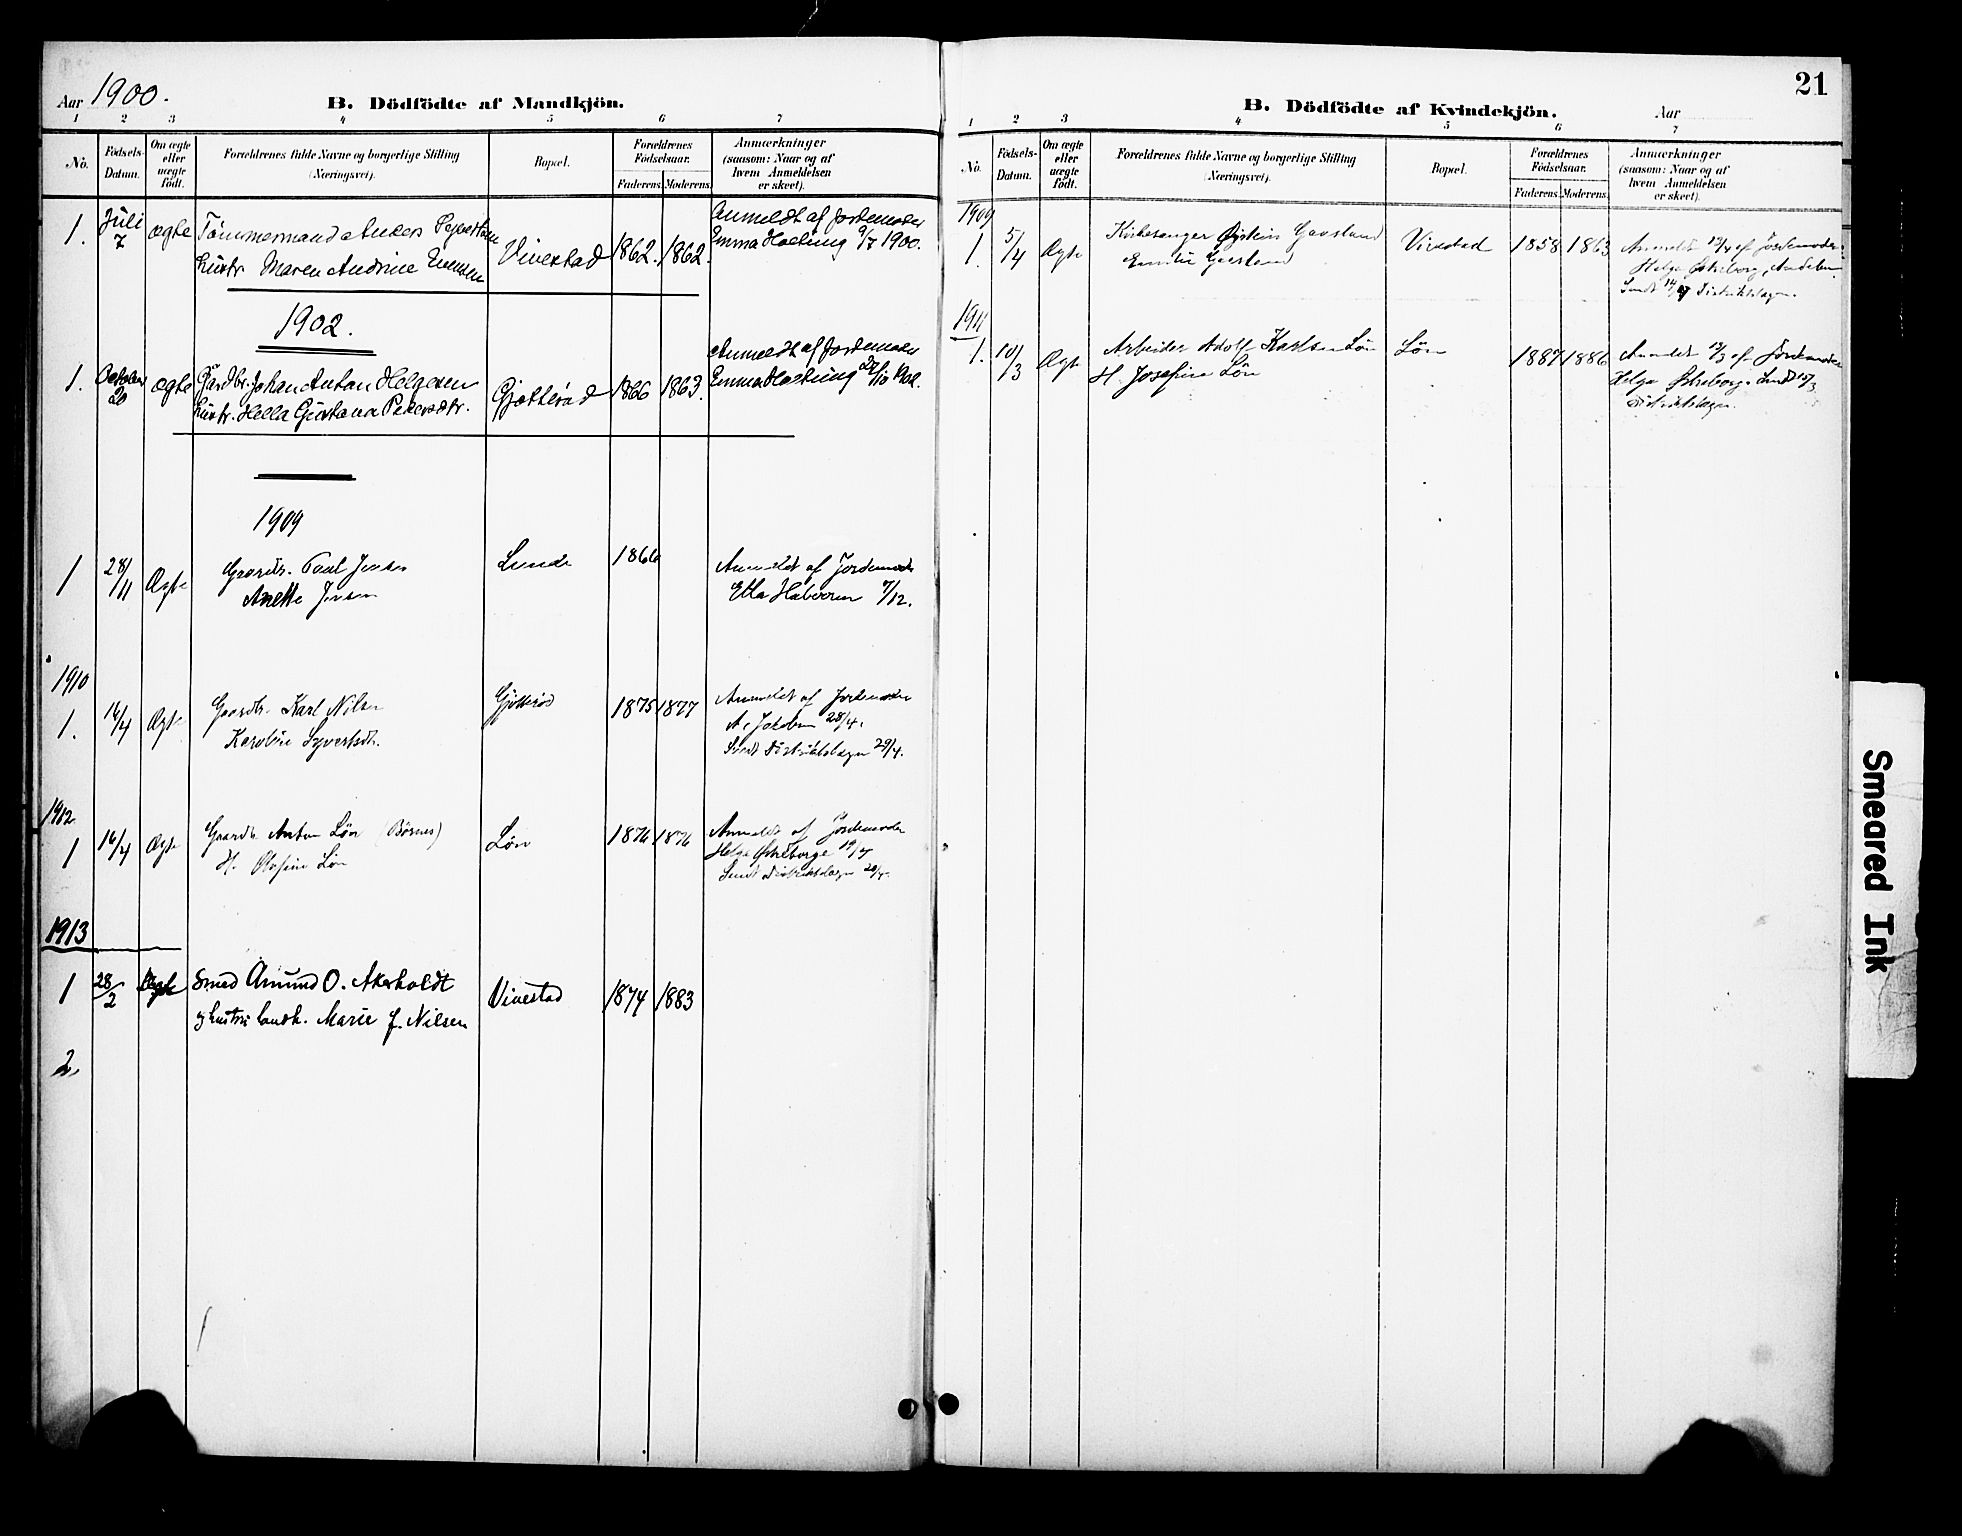 Aar 1900.
B. Dödfödte af Mandkjön.
1 2 3 4 5 6 7
No.
Födsels-Datum.
Om ægte eller uægte födt.
Forældrenes fulde Navne og borgerlige Stilling
(Næringsvei).
Bopæl.
Forældrenes Födselsaar.
Faderens. Moderens.
Anmærkninger
(saasom: Naar og af
hvem Anmeldelsen
er skeet).
1. Juli 7 ægte Tömmermand Anders Syvertsen
hustr. Maren Andrine Evensen
Vivestad 1862. 1862.
Anmeldt af Jordemoder
Emma Hostung 9/7 1900.
1902.
1. October 20 ægte Gårdbr. Johan Anton Helgesen
hustr. Hella Gustava Pedersdtr.
Gjötteröd 1866 1863.
Anmeldt af Jordemoder
Emma Hostung 22/10 1902.
1909
1 28/11 Ægte Gaardbr. Paul Jensen
Anette Jensen
Lunde 1866
Anmeldt af Jordemoder
Etta Halvorsen 7/12.
1910
1. 16/4 Ægte Gaardb. Karl Nilsen
Karoline Syvertsdtr.
Gjötteröd 1875 1877
Anmeldt af Jordemoder
A. Jacobsen 28/4.
Sendt Distriktslægen 29/4.
1912
1 16/4 Ægte Gaardb. Anton Löv (Börnes)
H. Olufine Löv
Löv 1876 1876
Anmeldt af Jordemoder
Helga Östreborge 19/4
Sendt Distriktslægen 20/4.
1913
1 28/2 Ægte Smed Amund O. Akerholdt
og hustru Marie J. Nilsen
Vivestad 1874 1883
2.
21
B. Dödfödte af Kvindekjön.
Aar
1 2 3 4 5 6 7
No.
Födsels-Datum.
Om ægte eller uægte födt.
Forældrenes fulde Navne og borgerlige Stilling
(Næringsvei).
Bopæl.
Forældrenes Födselsaar.
Faderens. Moderens.
Anmærkninger
(saasom: Naar og af
hvem Anmeldelsen
er skeet).
1909
1. 5/4 Ægte Kirkesanger Øystein Gavslund
Emilie Gavslund
Vivestad 1858 1863
Anmeldt 13/4 af Jordemoder
Helga Østreborg, Andebu.
Sendt 14/4 Distriktslægen.
1911
1. 10/3 Ægte Arbeider Adolf Karlsen Löv
H. Josefine Löv
Löv 1887 1886
Anmeldt 12/3 af Jordemoder
Helga Østreborg. Sendt 15/3
Distriktslægen.
Smeared Ink